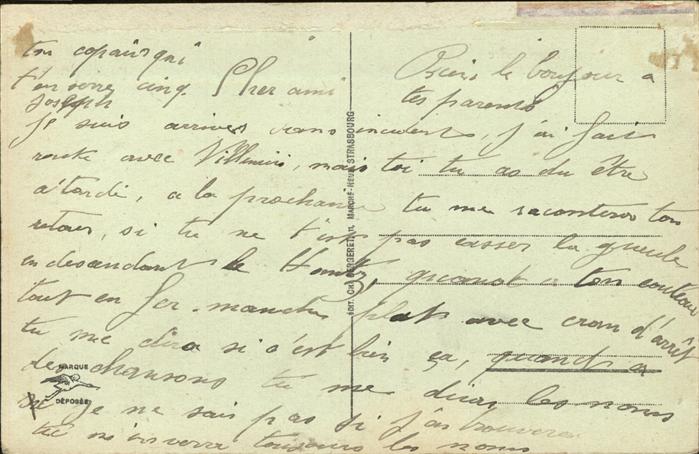 ton copain qui
t'en serre cinq
Joseph
Bien le bonjour a
tes parents
Cher ami
Je suis arrivé sans incident, j'ai fait
route avec Villemin, mais toi tu as du être
attardé, a la prochaine tu me raconteras ton
retour, si tu ne t'es pas casser la gueule
en descendant le Honeck, quand a ton couteau
tout en fer. manche plat avec cran d'arrêt
tu me dira si c'est bien ça, quand a
des chansons tu me diras les noms
je ne sais pas si j'en trouverai
tu toujours les noms
EDIT. CH. BERGERET STRASBOURG
MARQUE
DÉPOSÉE